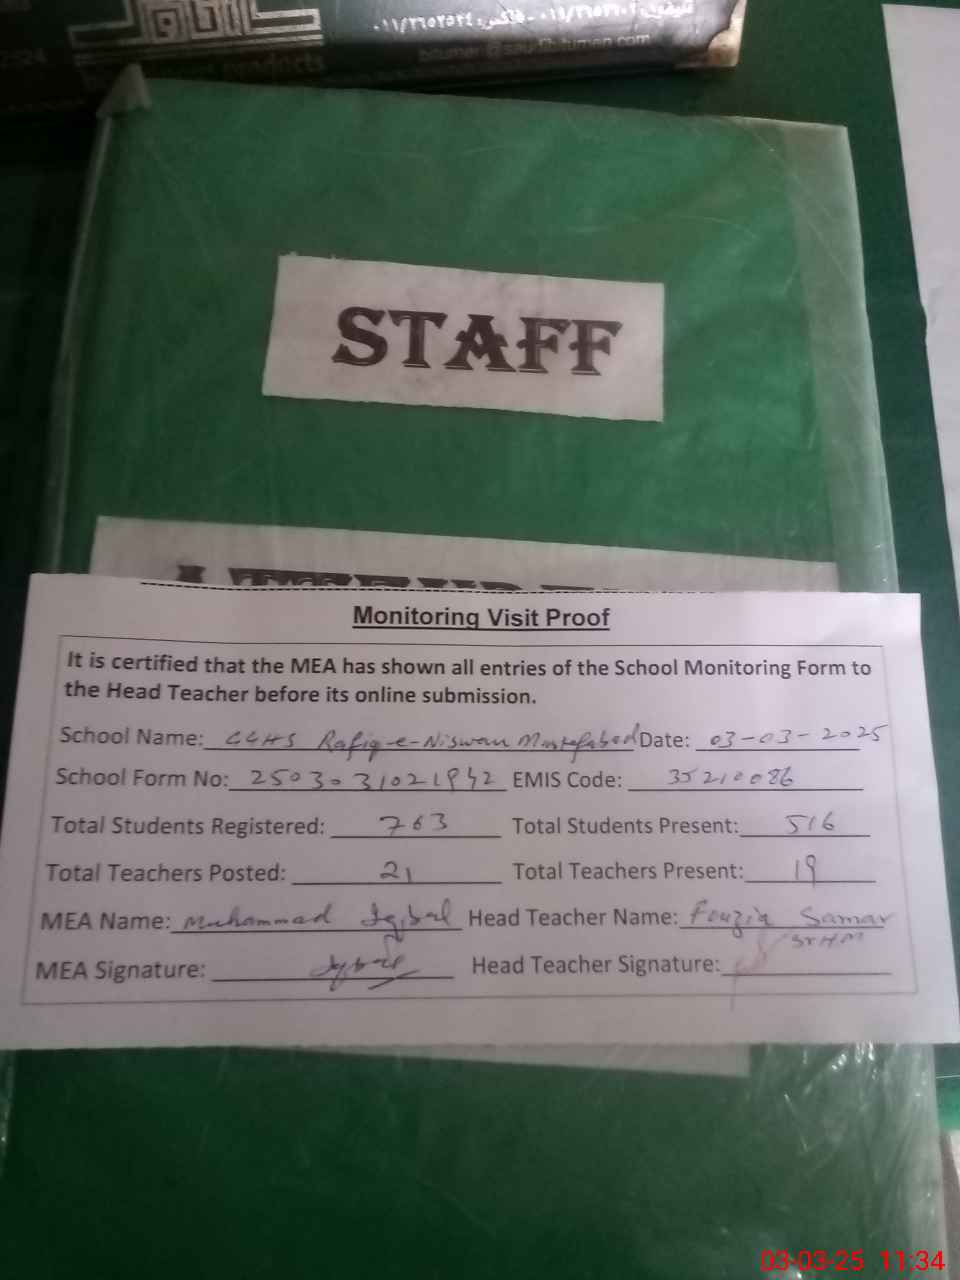 bitumen@saudibitumen.com
products
STAFF
Monitoring Visit Proof
It is certified that the MEA has shown all entries of the School Monitoring Form to
the Head Teacher before its online submission.
School Name: GGHS Rafiq-e-Niswan Mustafabad Date: 03-03-2025
School Form No: EMIS Code: 35210086
Total Students Registered: 763 Total Students Present: 516
Total Teachers Posted: 21 Total Teachers Present: 19
MEA Name: Muhammad Iqbal Head Teacher Name: Fouzia Samar
SrHM
MEA Signature: Iqbal Head Teacher Signature:
03-03-25 11:34